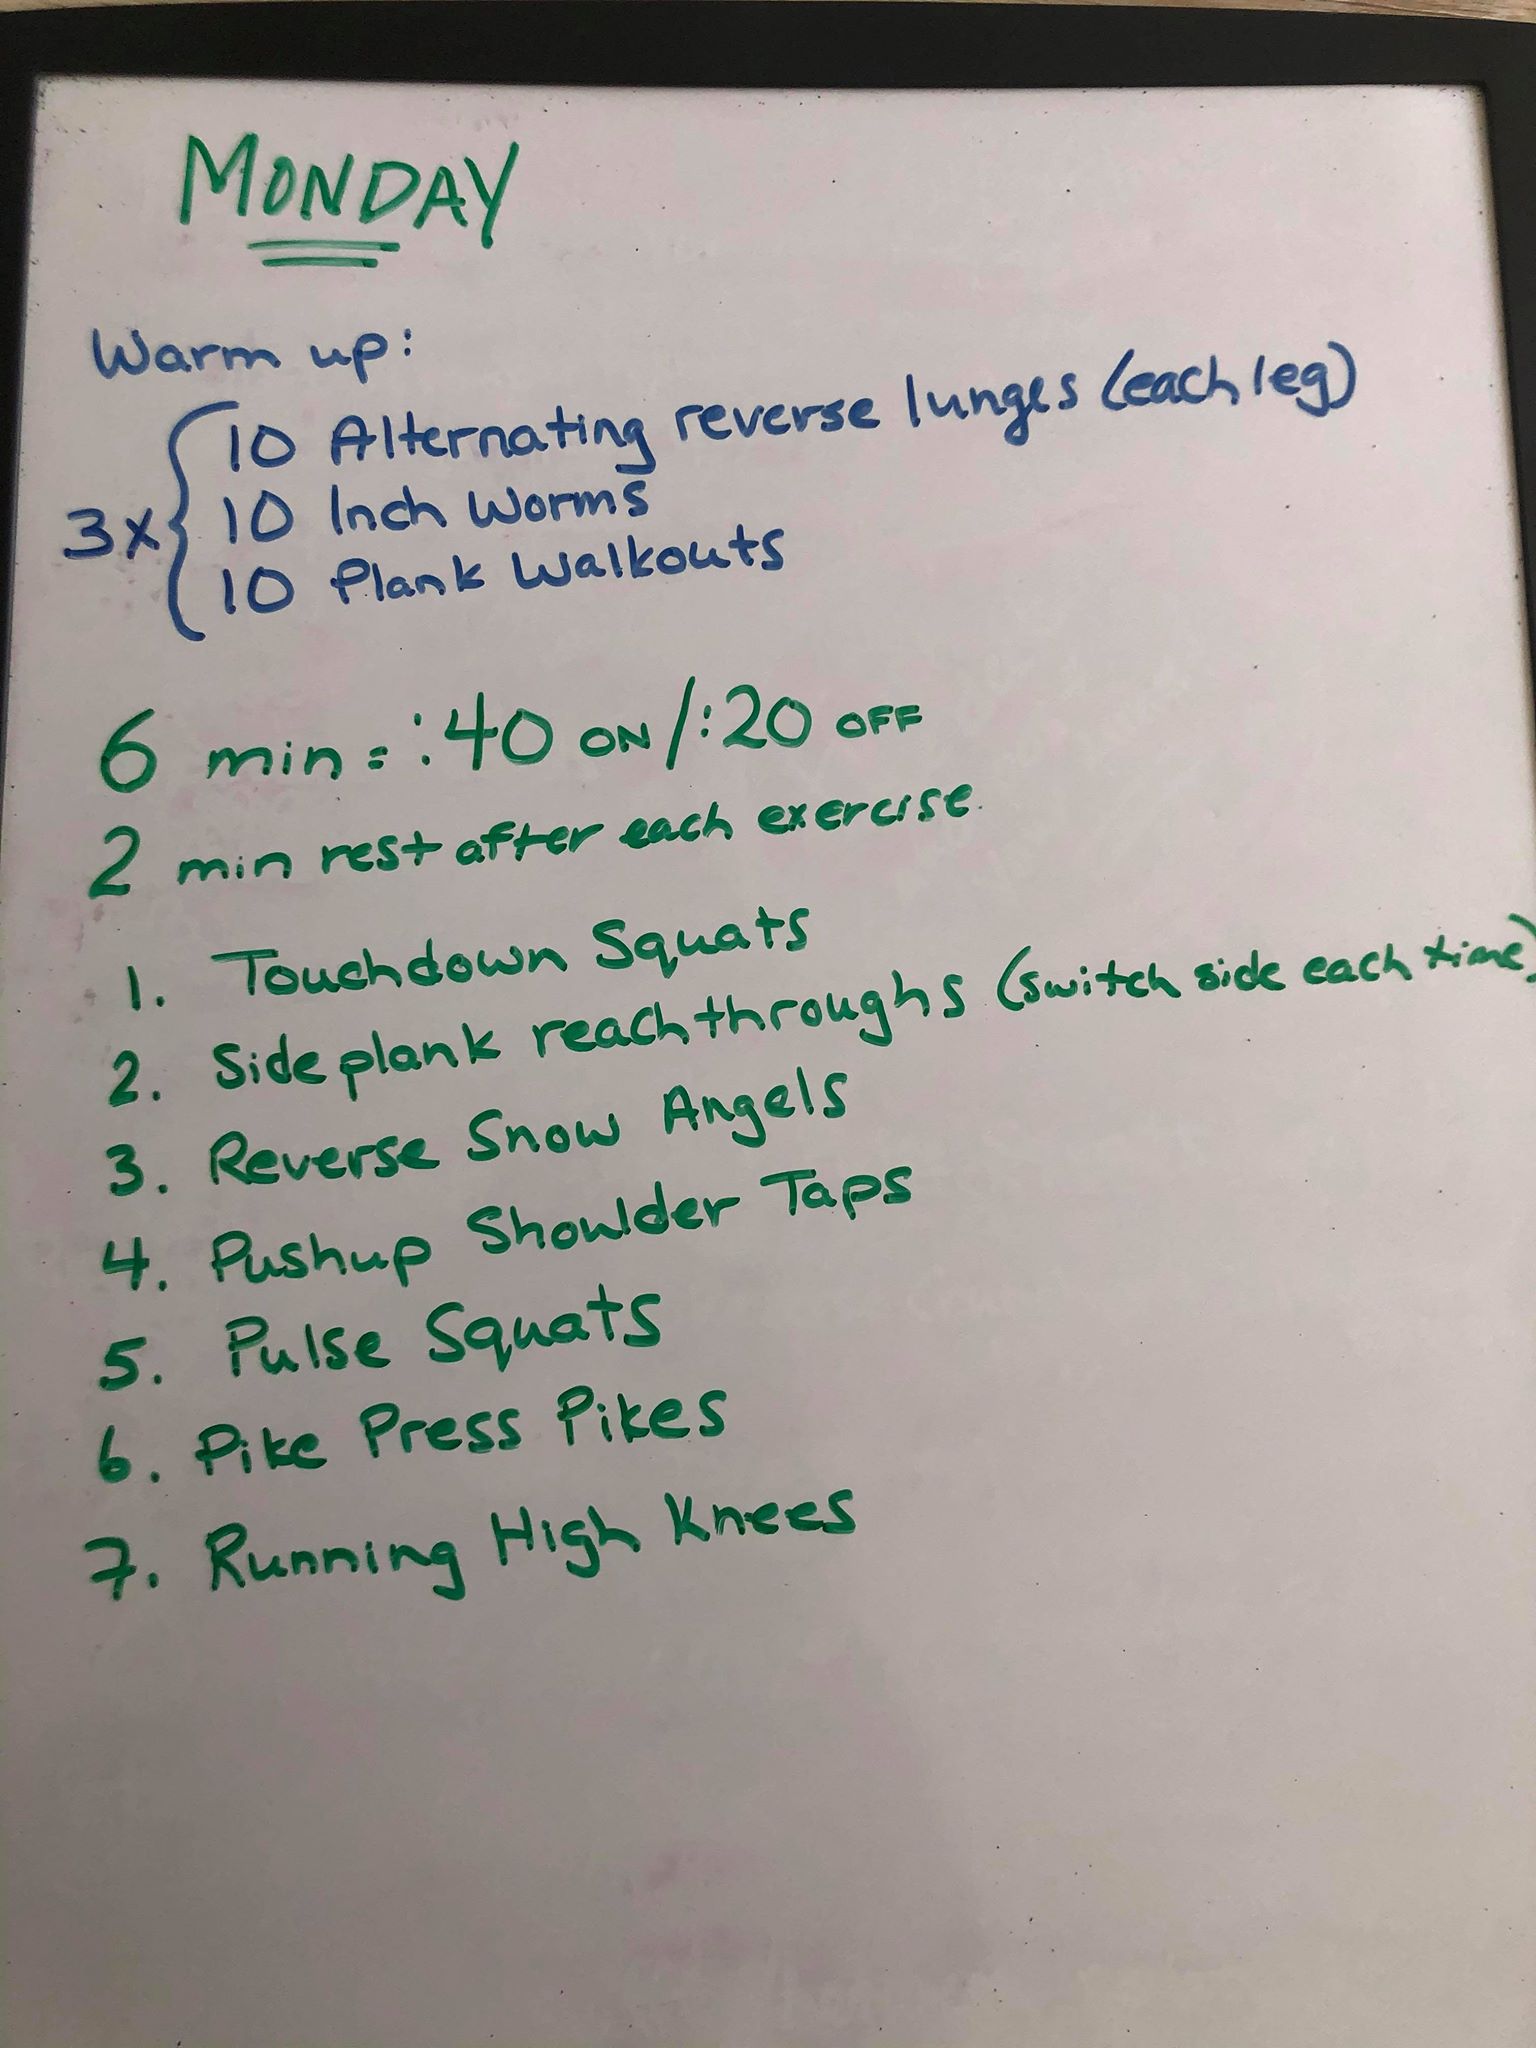 MONDAY
Warm up:
10 Alternating reverse lunges (each leg)
3x { 10 Inch Worms
10 Plank Walkouts
6 min = :40 ON / :20 OFF
2 min rest after each exercise.
1. Touchdown Squats
2. Side plank reach throughs (switch side each time)
3. Reverse Snow Angels
4. Pushup Shoulder Taps
5. Pulse Squats
6. Pike Press Pikes
7. Running High Knees